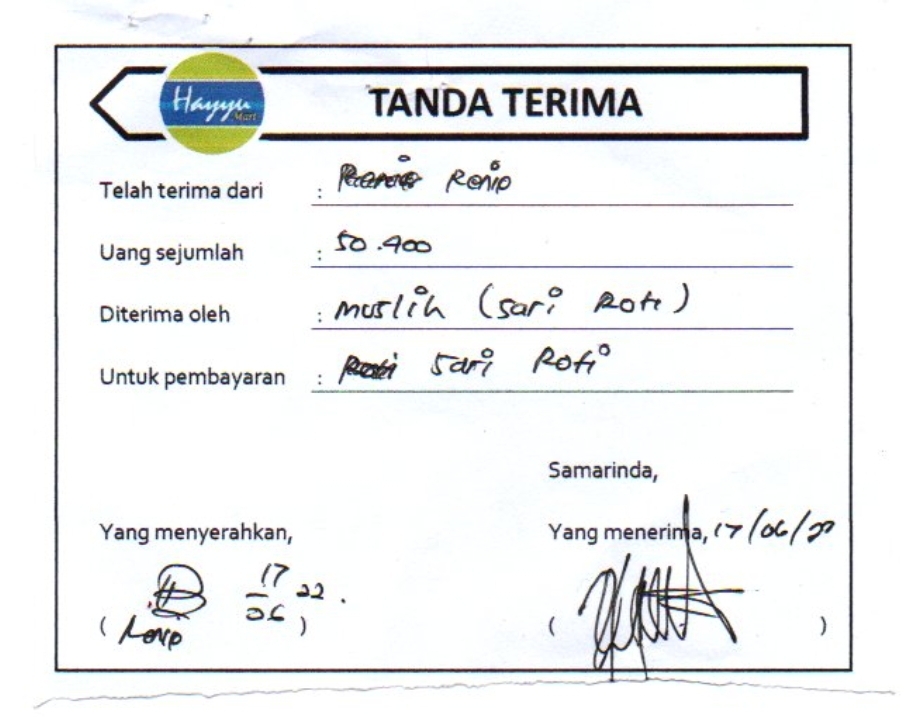 Hayyu
Mart
TANDA TERIMA
Telah terima dari : Ronip
Uang sejumlah : 50.400
Diterima oleh : Muslih (Sari Roti)
Untuk pembayaran : Sari Roti
Samarinda,
Yang menyerahkan,
Yang menerima, 17/06/22
17
06 22.
( Ronip )
( )